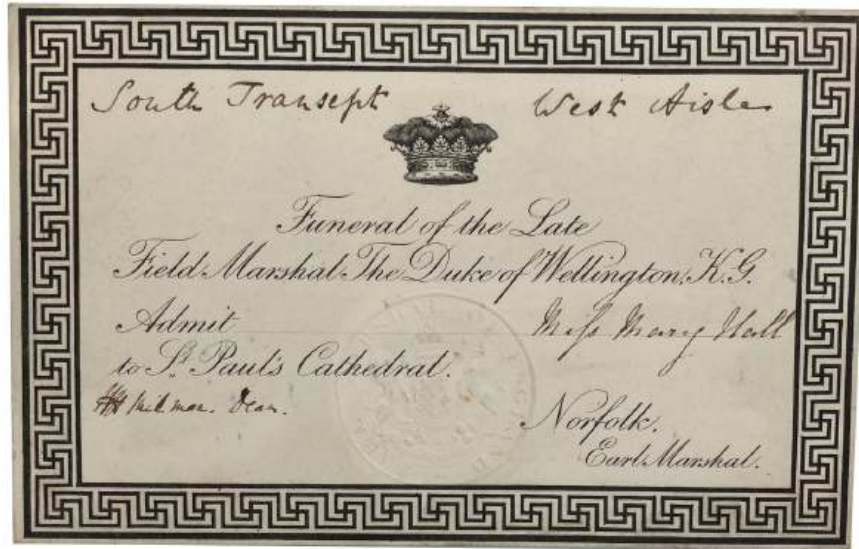 South Transept West Aisle
Funeral of the Late
Field Marshal The Duke of Wellington, K.G.
Admit Miss Mary Hall
to St. Paul's Cathedral.
HH Milman. Dean.
Norfolk.
Earl Marshal.